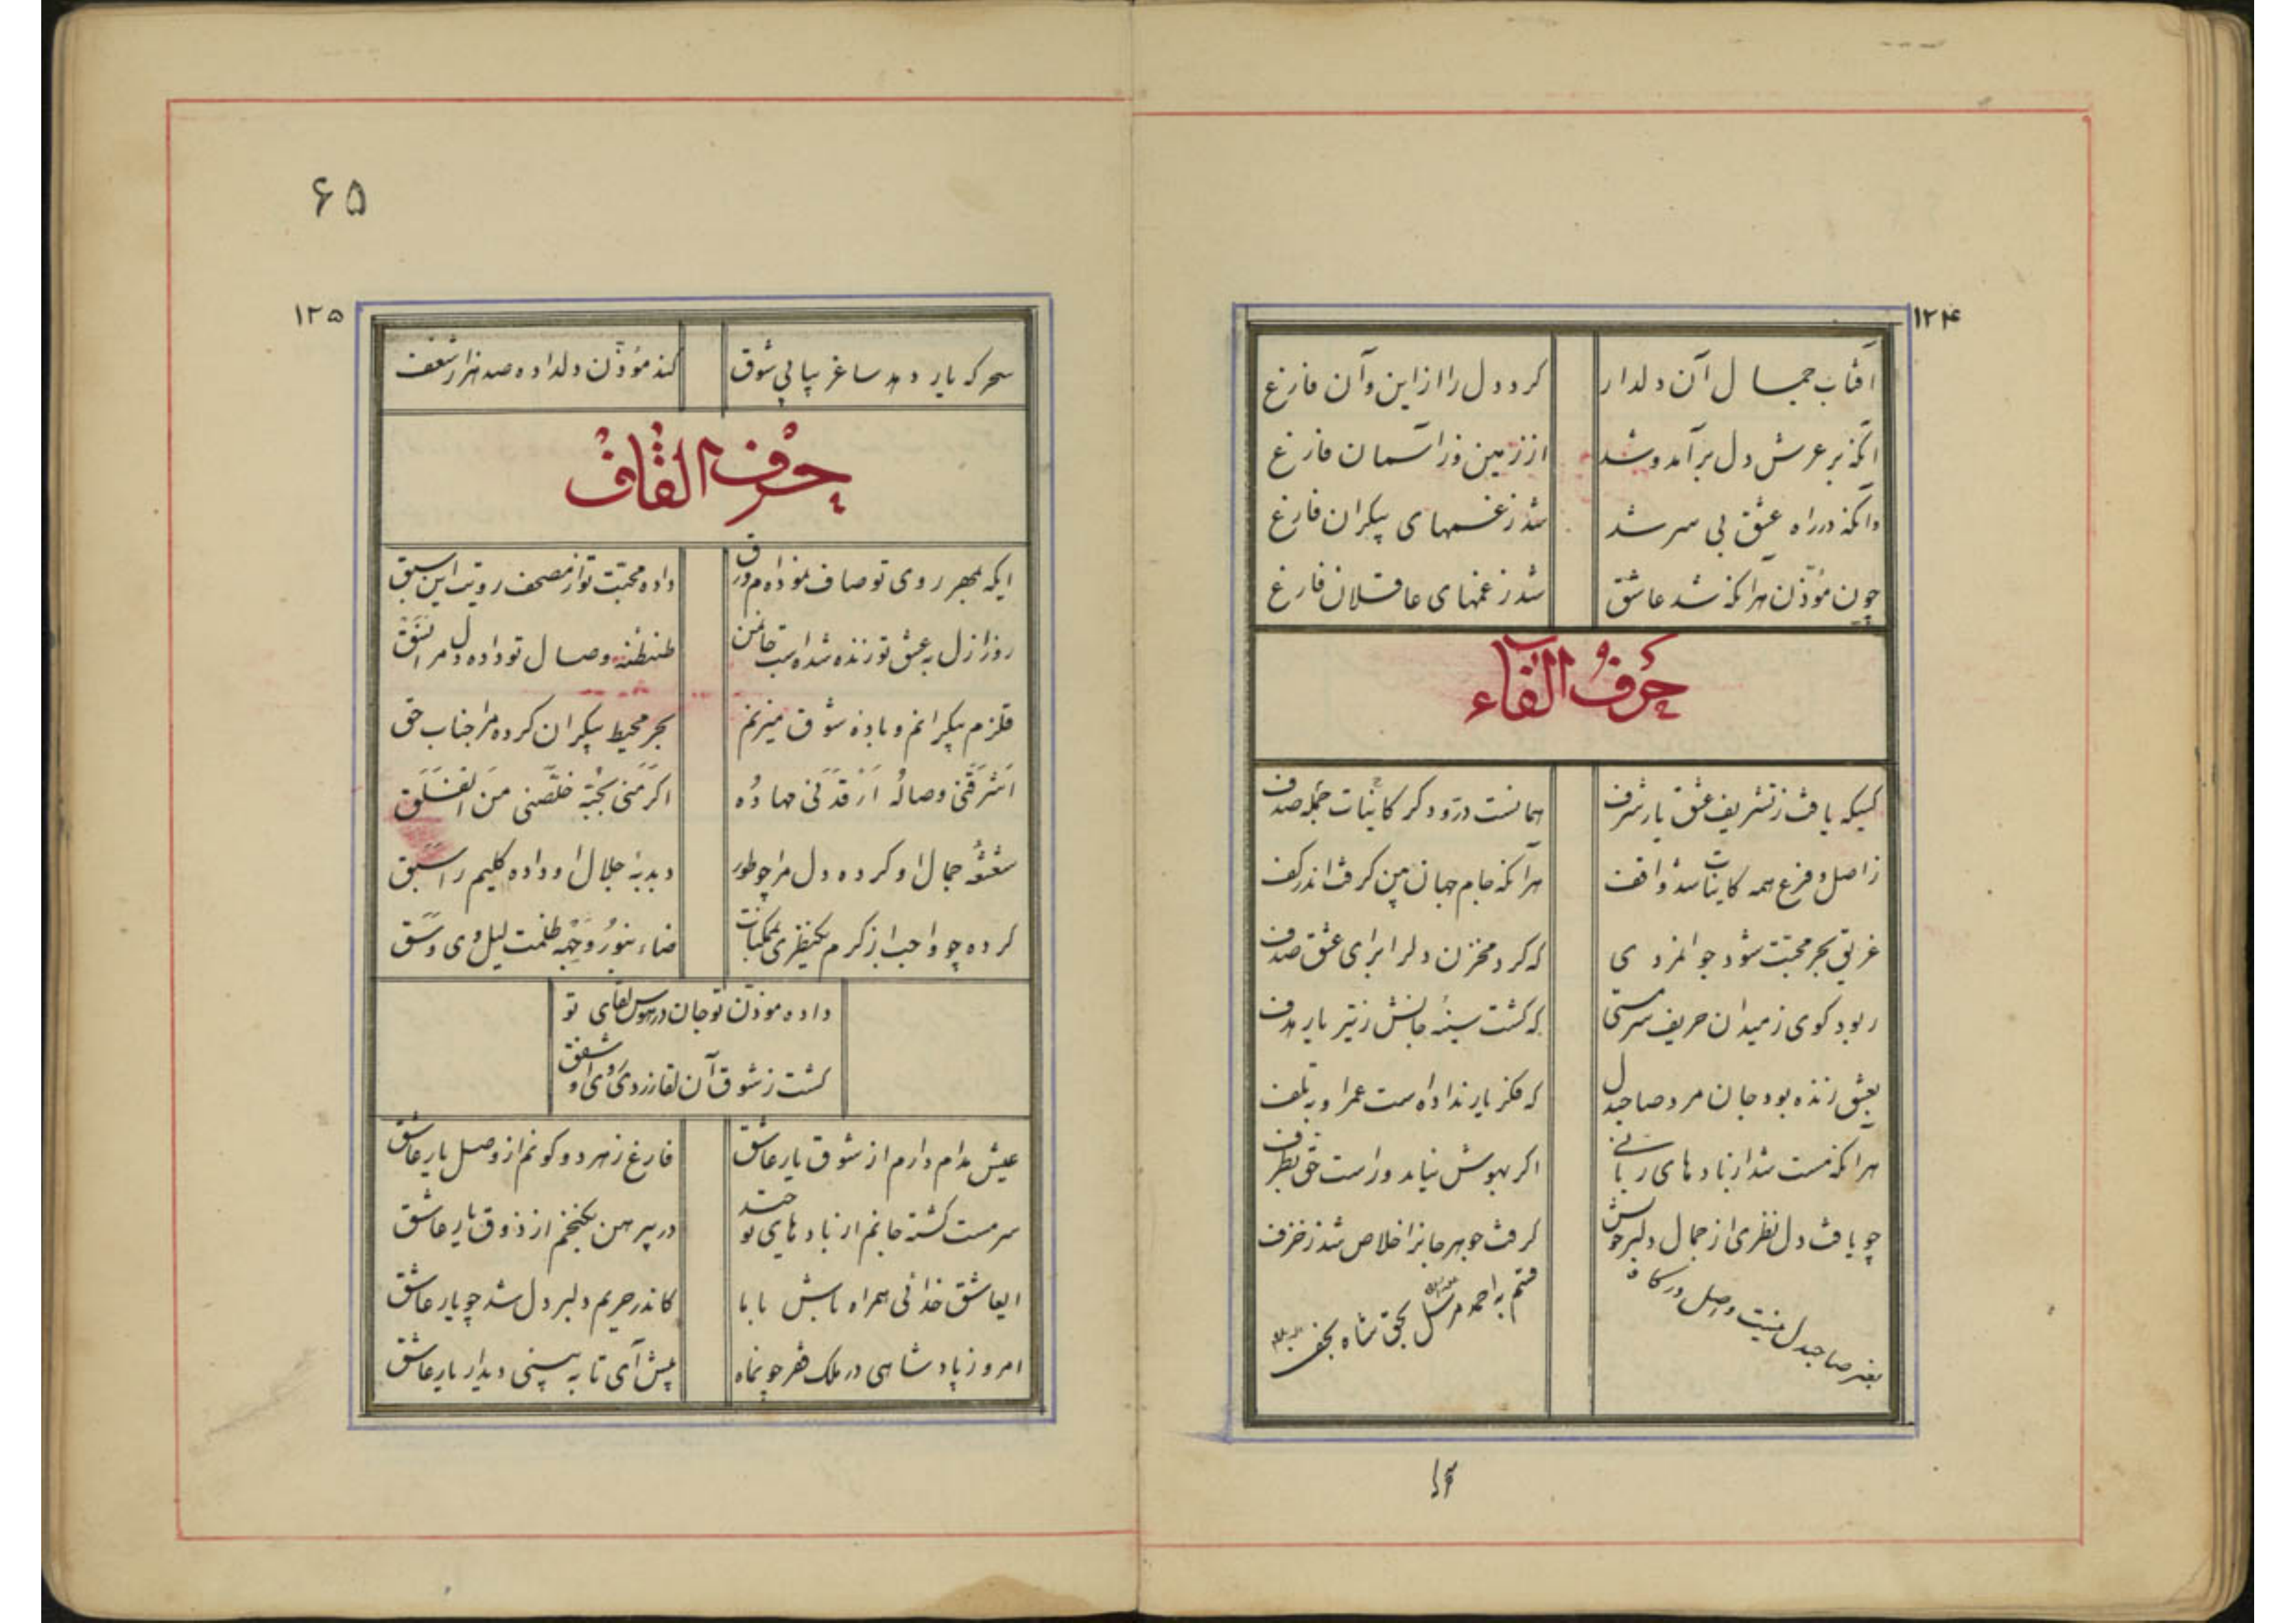 ۱۲۴
آفتاب جمال آن دلدار کرد دل را از این و آن فارغ
آنکه بر عرش دل برآمد و شد از زمین وز آسمان فارغ
وانکه در راه عشق بی سر شد شد ز غمهای بیکران فارغ
چون مؤذن هر آنکه شد عاشق شد ز غمهای عاقلان فارغ
حرف الفاء
کسیکه یافت ز تشریف عشق یار شرف همانست در و دگر کاینات جمله صدف
ز اصل و فرع همه کاینات شد واقف هر آنکه جام جهان بین گرفت اندر کف
غریق بحر محبت شود جوانمردی که کرد مخزن دلرا برای عشق صدف
ربود گوی ز میدان حریف سرمستی که گشت سینه جانش ز تیر یار هدف
بعشق زنده بود جان مرد صاحبدل که فکر یار نداده است عمر او به تلف
هر آنکه مست شد از بادهای ربانی اگر بهوش نیاید وراست حق بطرف
چو یافت دل نظری از جمال دلبر خوش گرفت جوهر جانرا خلاص شد ز خزف
بغیر صاحبدل نیست واصل درگاه قسم به احمد مرسل بحق شاه نجف
۶۵
۱۲۵
سحر که یار دهد ساغر پیاپی شوق کند مؤذن دلداده صد هزار شعف
حرف القاف
ایکه بمهر روی تو صاف نموده‌ام ورق داده محبت تو از مصحف رویت این سبق
روز ازل به عشق تو زنده شده است جان من طنطنه وصال تو داده دل مرا نسق
قلزم بیکرانم و باده شوق میزنم بحر محیط بیکران کرده مرا جناب حق
اشرقنی وصاله ارقدنی مهاده اکرمنی بحبه خلصنی من الغسق
شعشعه جمال او کرده دل مرا چو طور دبدبه جلال او داده کلیم را سبق
کرده چو واجب از کرم یکنظری بممکنات ضاء بنور وجهه ظلمت لیل وی وسق
داده مؤذن تو جان در هوس لقای تو
گشت ز شوق آن لقا زردی روی او شفق
عیش مدام دارم از شوق یار عاشق فارغ ز هر دو کونم از وصل یار عاشق
سرمست گشته جانم از بادهای تو در پیرهن نگنجم از ذوق یار عاشق
ایعاشق خدائی همراه باش با ما کاندر حریم دلبر دل شد چو یار عاشق
امروز پادشاهی در ملک فقر چو ماه پیش آی تا به بینی دیدار یار عاشق